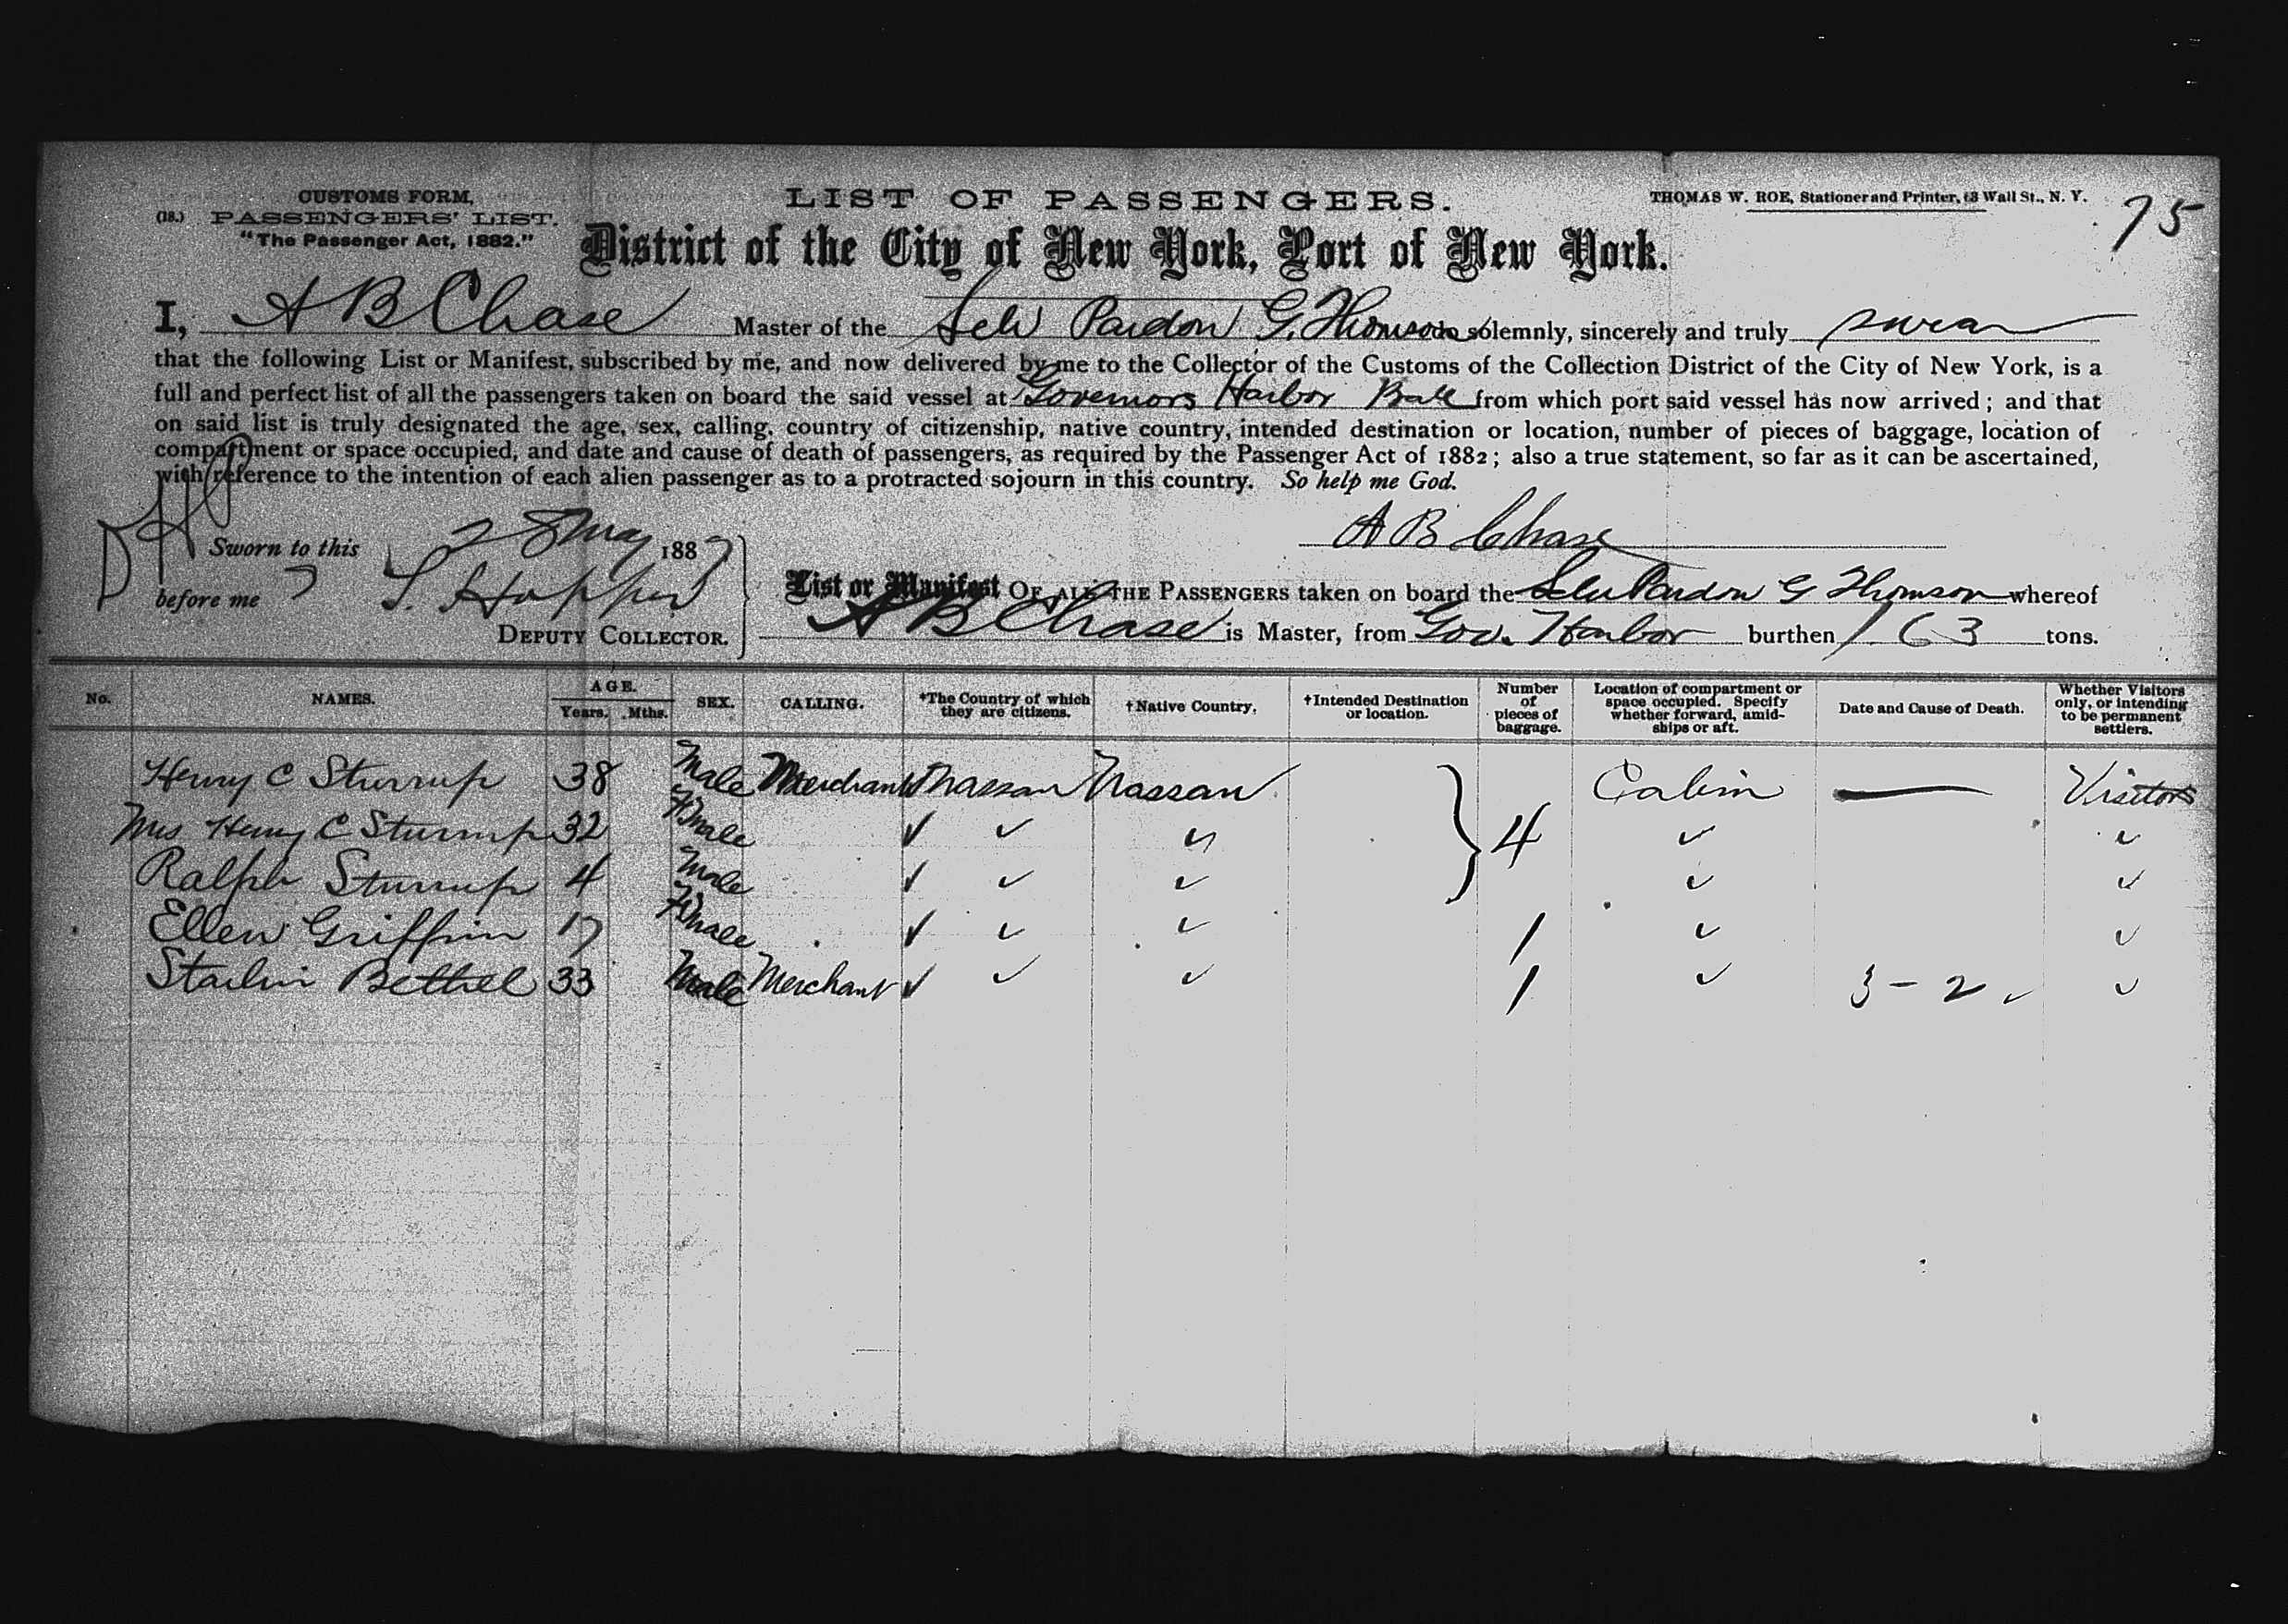 CUSTOMS FORM,
(18.) PASSENGERS' LIST.
"The Passenger Act, 1882."
LIST OF PASSENGERS.
THOMAS W. ROE, Stationer and Printer, 63 Wall St., N. Y.
75
District of the City of New York, Port of New York.
I, A B Chase Master of the Sch Pardon G. Thomson do solemnly, sincerely and truly swear
that the following List or Manifest, subscribed by me, and now delivered by me to the Collector of the Customs of the Collection District of the City of New York, is a
full and perfect list of all the passengers taken on board the said vessel at Governors Harbor from which port said vessel has now arrived; and that
on said list is truly designated the age, sex, calling, country of citizenship, native country, intended destination or location, number of pieces of baggage, location of
compartment or space occupied, and date and cause of death of passengers, as required by the Passenger Act of 1882; also a true statement, so far as it can be ascertained,
with reference to the intention of each alien passenger as to a protracted sojourn in this country. So help me God.
A B Chase
Sworn to this 28 May 1887
before me
DEPUTY COLLECTOR.
List or Manifest OF ALL THE PASSENGERS taken on board the Sch Pardon G Thomson whereof
A B Chase is Master, from Gov. Harbor burthen 163 tons.
No. NAMES. AGE. Years. Mths. SEX. CALLING. *The Country of which they are citizens. †Native Country. †Intended Destination or location. Number of pieces of baggage. Location of compartment or space occupied. Specify whether forward, amidships or aft. Date and Cause of Death. Whether Visitors only, or intending to be permanent settlers.
Henry C Sturrup 38 Male Merchant Nassau Nassau Cabin — Visitors
Mrs Henry C Sturrup 32 Female ✓ ✓ ✓ 4 ✓ ✓
Ralph Sturrup 4 Male ✓ ✓ ✓ ✓ ✓
Ellen Griffin 17 Female ✓ ✓ ✓ 1 ✓ ✓
Bethel 33 Male Merchant ✓ ✓ ✓ 1 ✓ 3-2 ✓ ✓